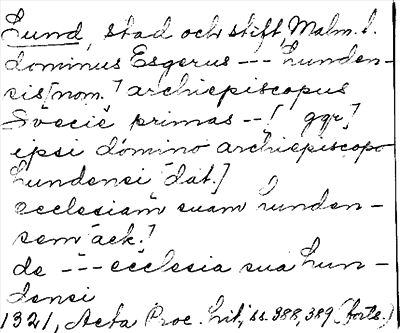 Lund, stad och stift, Malm. l.
dominus Esgerus --- Lunden-
sis [nom.] archiepiscopus
Svecie primas -- [ ggr]
ipsi domino archiepiscopo
Lundensi [dat.]
ecclesiam suam Lunden-
sem [ack.]
de --- ecclesia sua Lun-
densi
1321, Acta Proc. Lit, ss 388, 389 (forts.)